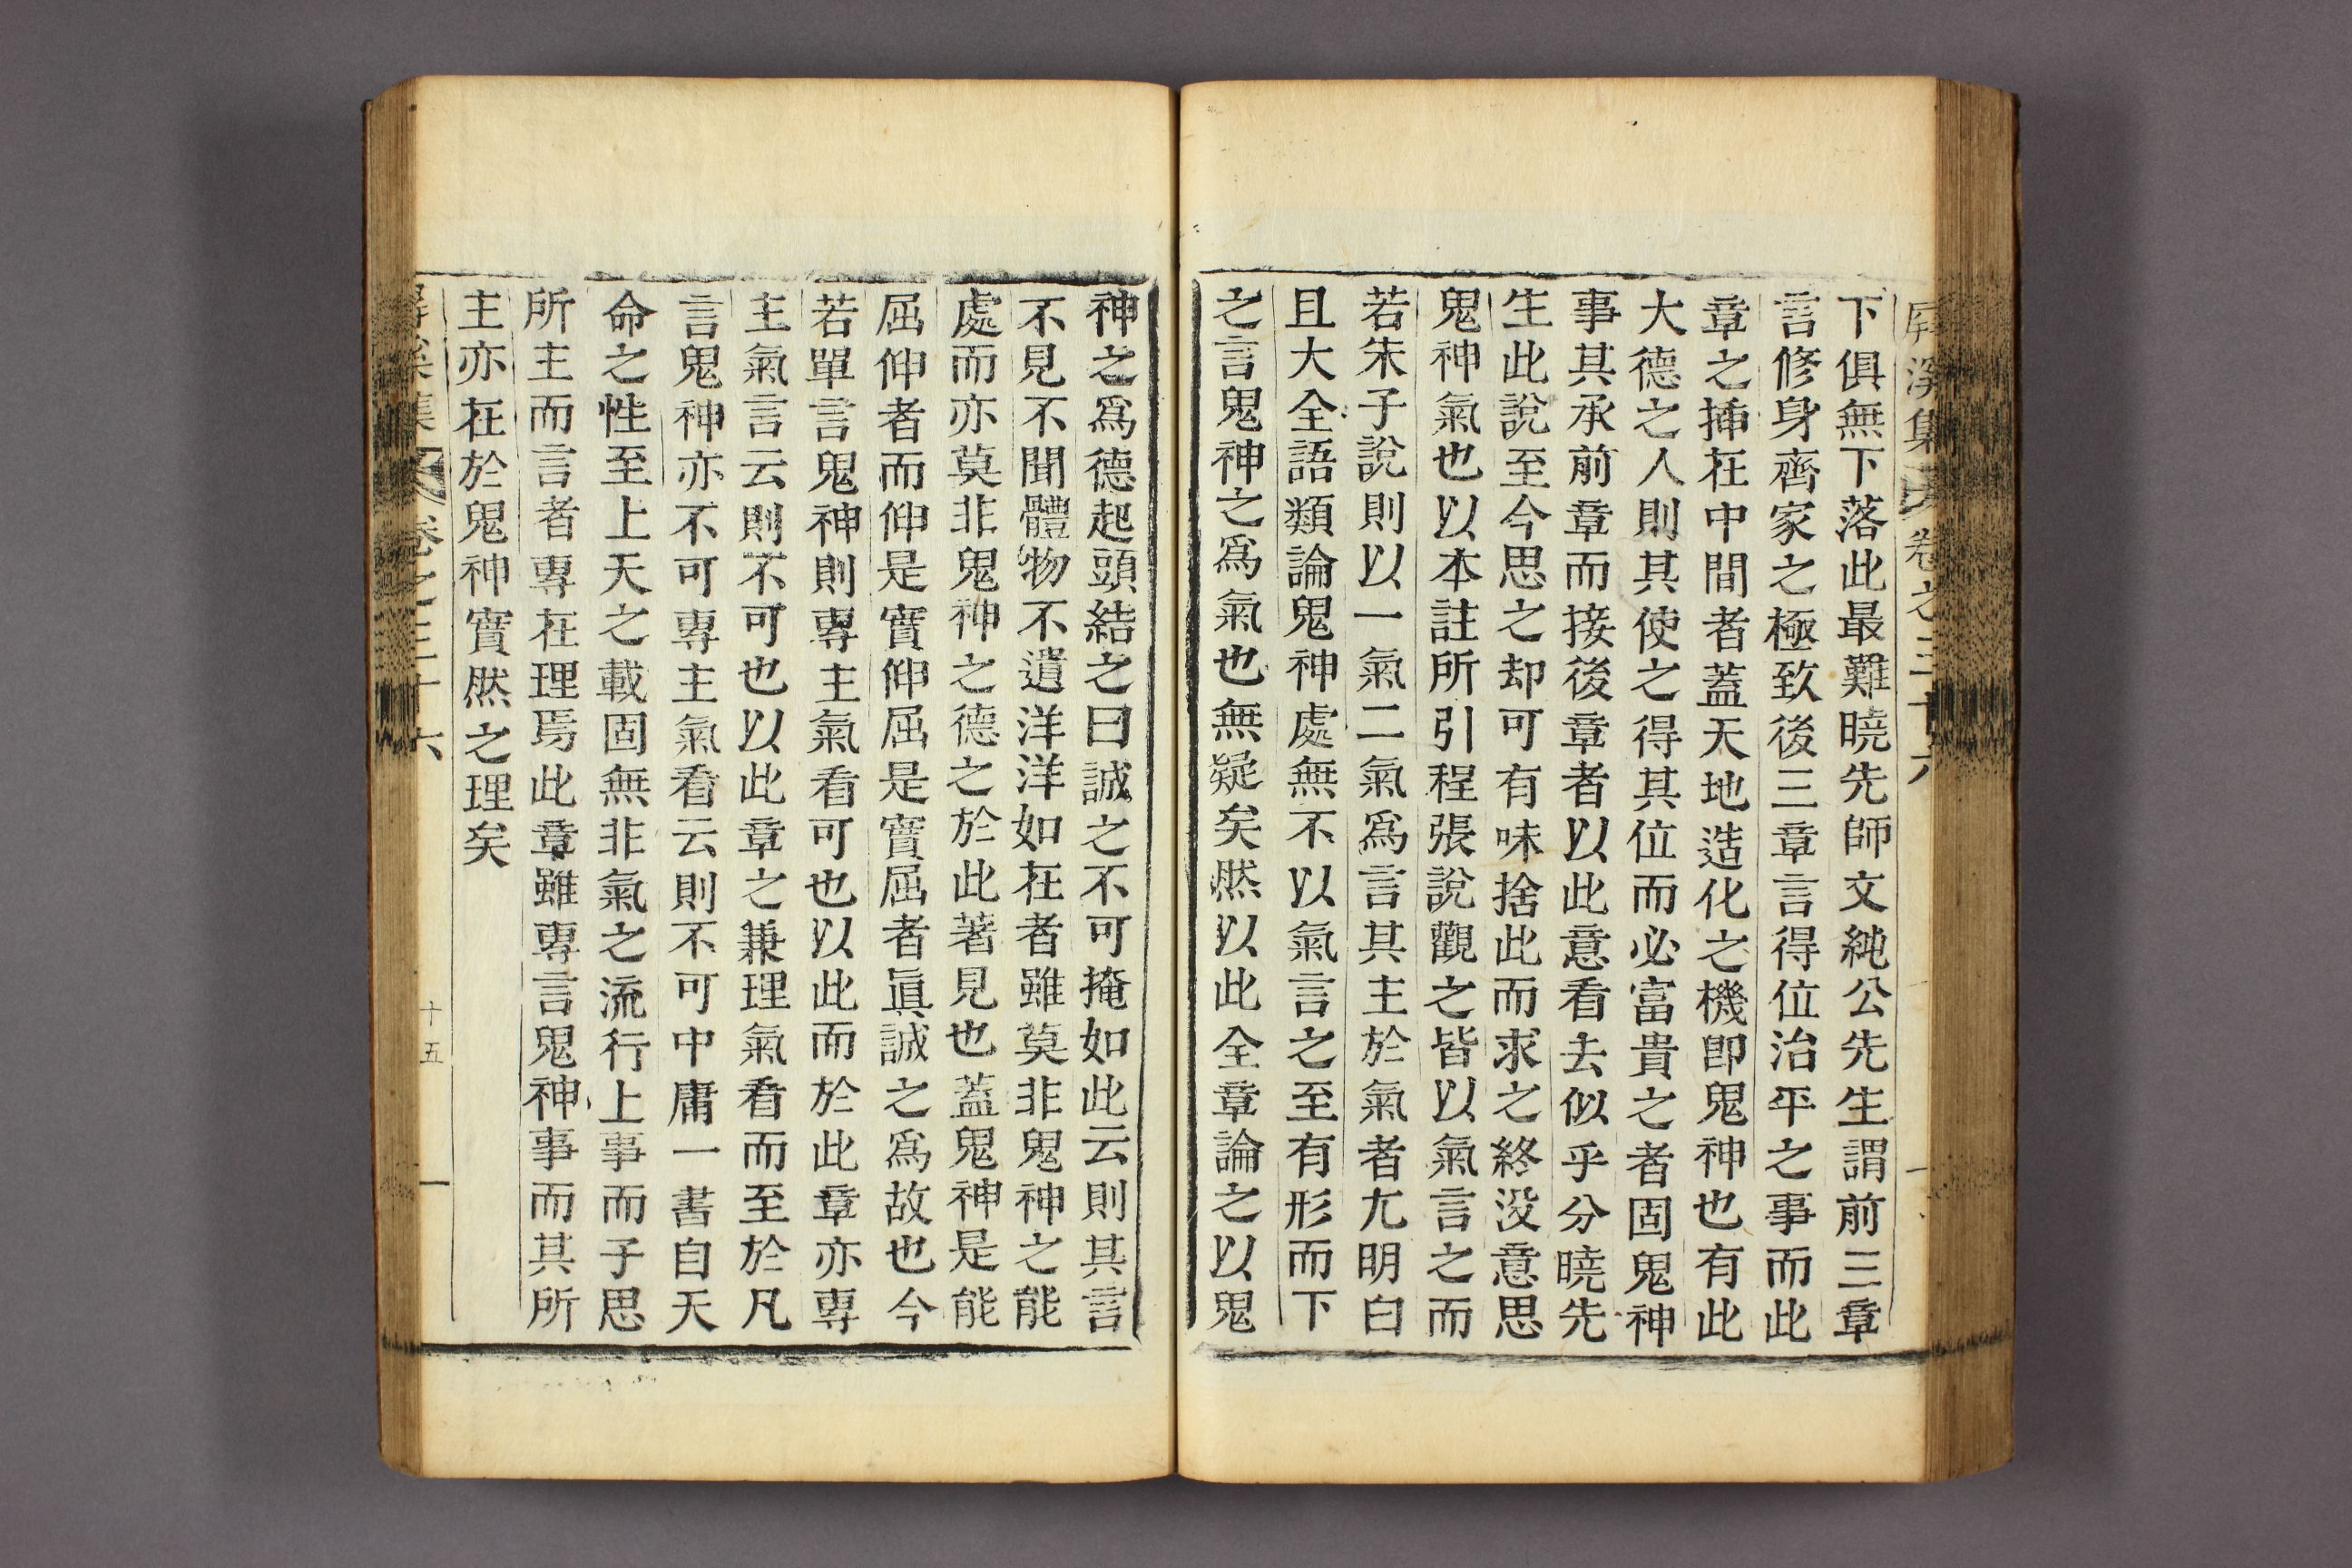 屛溪集 卷之三十六
下俱無下落此最難曉先師文純公先生謂前三章
言修身齊家之極致後三章言得位治平之事而此
章之揷在中間者蓋天地造化之機卽鬼神也有此
大德之人則其使之得其位而必富貴之者固鬼神
事其承前章而接後章者以此意看去似乎分曉先
生此說至今思之却可有味捨此而求之終没意思
鬼神氣也以本註所引程張說觀之皆以氣言之而
若朱子說則以一氣二氣爲言其主於氣者尤明白
且大全語類論鬼神處無不以氣言之至有形而下
之言鬼神之爲氣也無疑矣然以此全章論之以鬼
神之爲德起頭結之曰誠之不可掩如此云則其言
不見不聞體物不遺洋洋如在者雖莫非鬼神之能
處而亦莫非鬼神之德之於此著見也蓋鬼神是能
屈伸者而伸是實伸屈是實屈者眞誠之爲故也今
若單言鬼神則專主氣看可也以此而於此章亦專
主氣言云則不可也以此章之兼理氣看而至於凡
言鬼神亦不可專主氣看云則不可中庸一書自天
命之性至上天之載固無非氣之流行上事而子思
所主而言者專在理焉此章雖專言鬼神事而其所
主亦在於鬼神實然之理矣
屛溪集 卷之三十六 十五